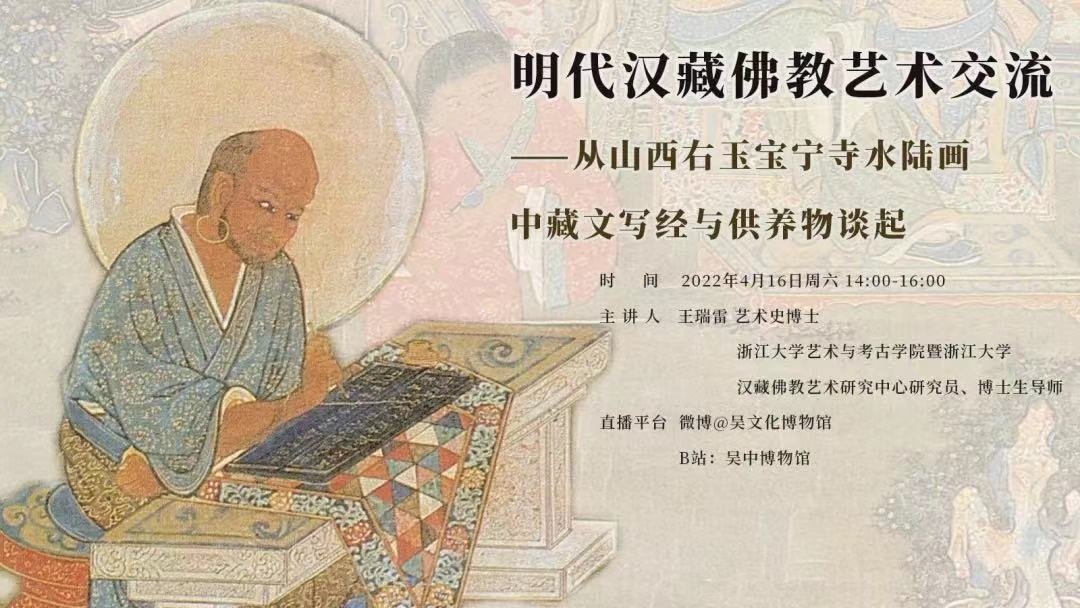 明代汉藏佛教艺术交流
——从山西右玉宝宁寺水陆画
中藏文写经与供养物谈起
时 间 2022年4月16日周六 14:00-16:00
主讲人 王瑞雷 艺术史博士
浙江大学艺术与考古学院暨浙江大学
汉藏佛教艺术研究中心研究员、博士生导师
直播平台 微博@吴文化博物馆
B站：吴中博物馆